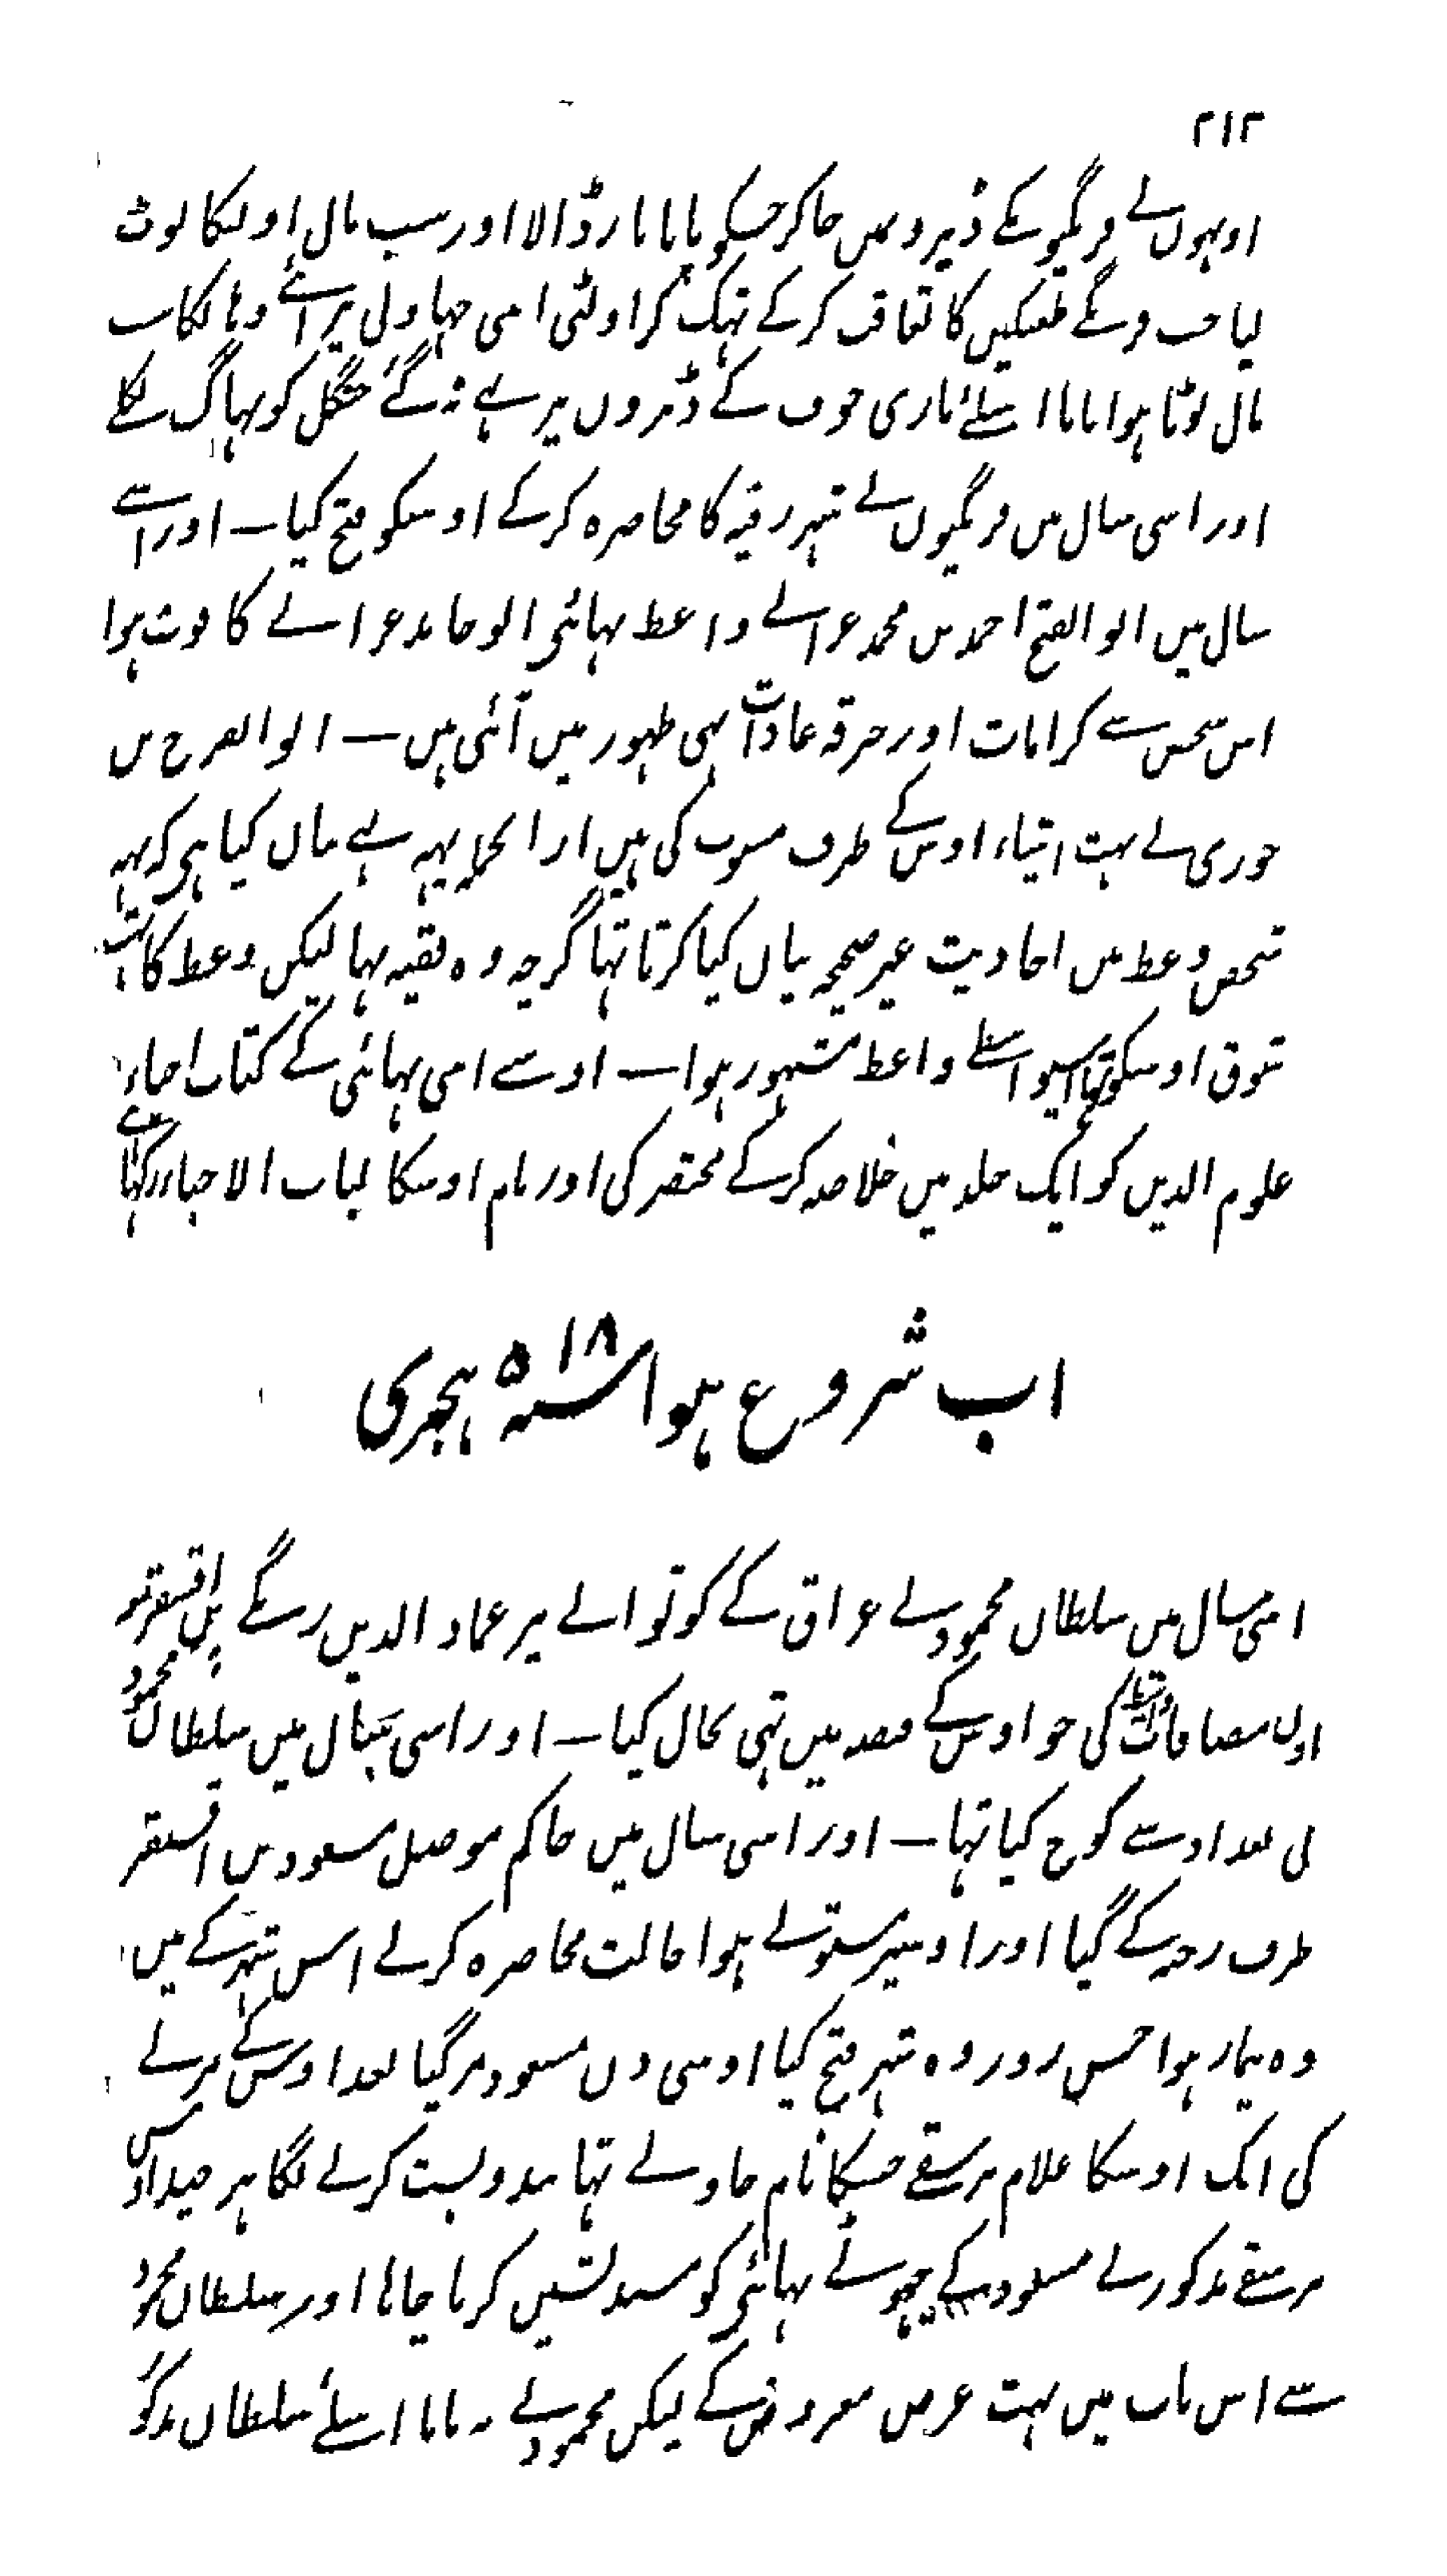 ۲۱۲
اونہوں نے فرنگیو کے ڈیرو میں جاکر جسکو پایا مار ڈالا اور سب مال اونکا لوٹ
لیا جب فرنگے طغتکین کا تعاقب کرکے تہک کر اولٹی اپنی چہاونی پر آئے وہا نکا سب
مال لوٹا ہوا پایا اسلئے ماری خوف کے ڈیروں پر سے نہ گئے جنگل کو بہاگ نکلے
اور اسی سال میں فرنگیوں نے شہر رفنیہ کا محاصرہ کرکے اوسکو فتح کیا ــ اور اسے
سال میں ابو الفتح احمد بن محمد غزالے واعظ بہائی ابو حامد غزالے کا فوت ہوا
اس شخص سے کرامات اور خرقہ عادات بہی ظہور میں آئی ہیں ــ ابو الفرج بن
جوزی نے بہت اشیاء اوس کے طرف منسوب کی ہیں ازانجملہ یہہ بہے بیان کیا ہی کہ یہہ
شخص وعظ میں احادیث غیر صحیحہ بیاں کیا کرتا تہا گرچہ وہ فقیہ تہا لیکن وعظ کا بہت
شوق اوسکو تہا اسیواسطے واعظ مشہور ہوا ــ اوسنے اپنی بہائی کے کتاب احیاء
علوم الدین کو ایک جلد میں خلاصہ کرکے مختصر کی اور نام اوسکا لباب الاحیا رکہا ہے
اب شروع ہوا سنہ ۵۱۸ ہجری
اسی سال میں سلطان محمود نے عراق کے کوتوالے پر عماد الدین زنگے بن اقسنقر کو
اون مضافات کی جو اوس کے قبضہ میں تہی بحال کیا ــ اور اسی سال میں سلطان محمود
نی بغداد سے کوچ کیا تہا ــ اور اسی سال میں حاکم موصل مسعود بن اقسنقر
طرف رحبہ کے گیا اور اوسپر مستولے ہوا حالت محاصرہ کرنے اس شہر کے میں
وہ بیمار ہوا جس روز وہ شہر فتح کیا اوسی دن مسعود مر گیا بعد اوس کے مرنے
کی ایک اوسکا غلام برسقے جسکا نام جاولے تہا بندوبست کرنے لگا ہر چند اوس
برسقے مذکور نے مسعود کے چہوٹے بہائی کو مسند نشیں کرنا چاہا اور سلطان محمود
سے اس باب میں بہت عرض معروض کے لیکن محمود نے نہ مانا اسلئے سلطان مذکو